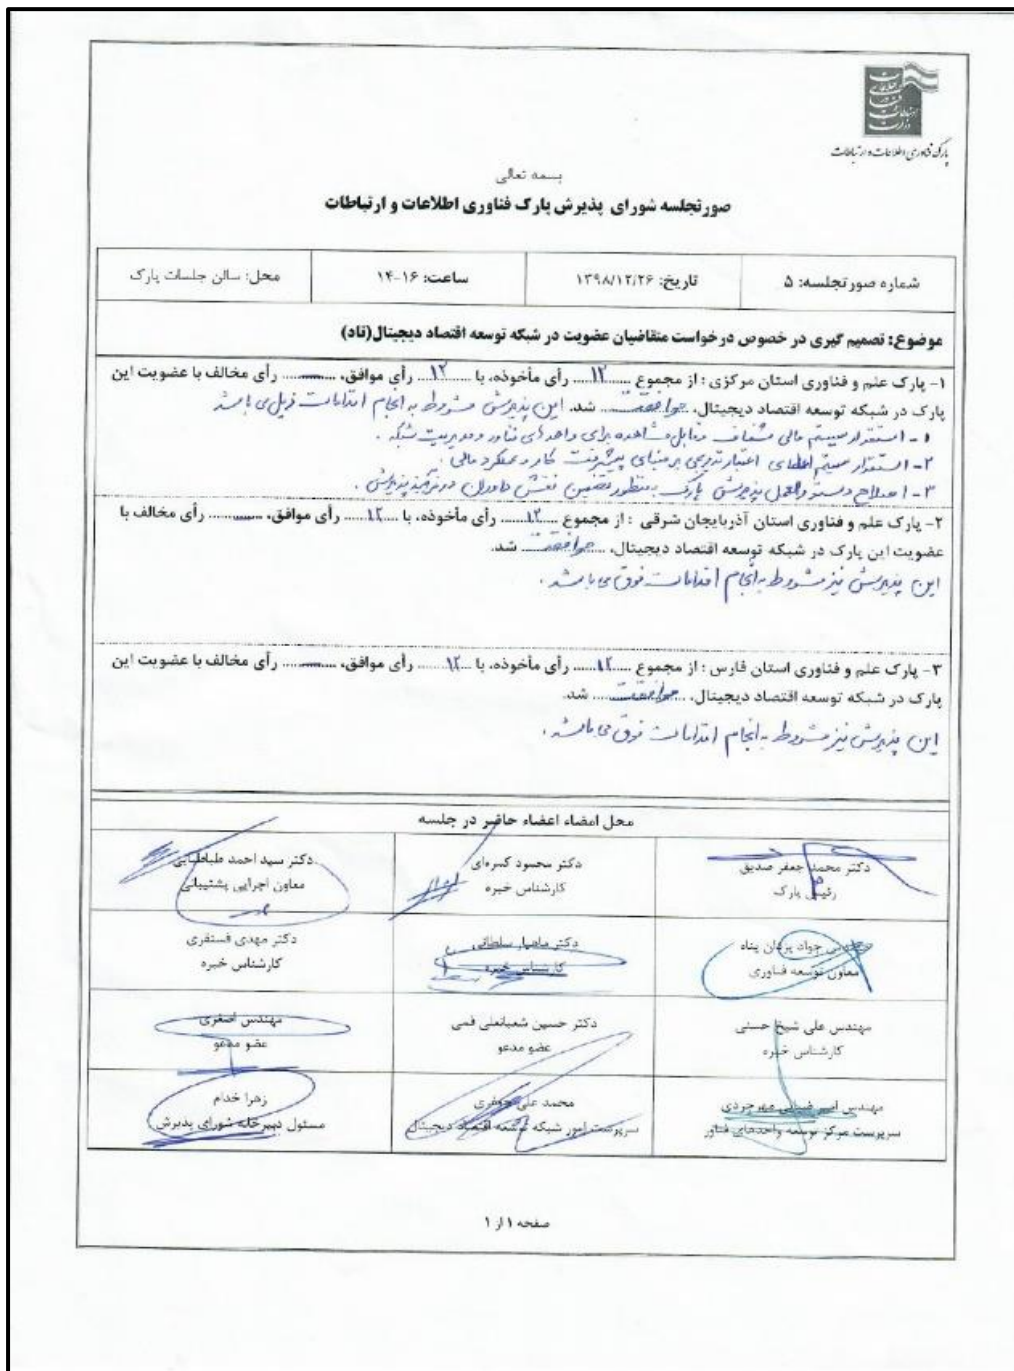 پارک فناوری اطلاعات و ارتباطات
بسمه تعالی
صورتجلسه شورای پذیرش پارک فناوری اطلاعات و ارتباطات
شماره صورتجلسه: ۵
تاریخ: ۱۳۹۸/۱۲/۲۶
ساعت: ۱۶-۱۴
محل: سالن جلسات پارک
موضوع: تصمیم گیری در خصوص درخواست متقاضیان عضویت در شبکه توسعه اقتصاد دیجیتال(تاد)
۱- پارک علم و فناوری استان مرکزی : از مجموع ...۱۲... رأی مأخوذه، با ...۱۲... رأی موافق، ............ رأی مخالف با عضویت این
پارک در شبکه توسعه اقتصاد دیجیتال، ...موافقت... شد. این پذیرش مشروط به انجام اقدامات ذیل می باشد
۱- استقرار سیستم مالی شفاف و قابل مشاهده برای واحدهای فناور و مدیریت شبکه .
۲- استقرار سیستم اعطای اعتبار تدریجی بر مبنای پیشرفت کار و عملکرد مالی .
۳- اصلاح دستورالعمل پذیرش پارک به منظور تضمین نقش داوران در فرآیند پذیرش .
۲- پارک علم و فناوری استان آذربایجان شرقی : از مجموع ...۱۲... رأی مأخوذه، با ...۱۲... رأی موافق، ............ رأی مخالف با
عضویت این پارک در شبکه توسعه اقتصاد دیجیتال، ...موافقت... شد.
این پذیرش نیز مشروط به انجام اقدامات فوق می باشد .
۳- پارک علم و فناوری استان فارس : از مجموع ...۱۲... رأی مأخوذه، با ...۱۲... رأی موافق، ............ رأی مخالف با عضویت این
پارک در شبکه توسعه اقتصاد دیجیتال، ...موافقت... شد.
این پذیرش نیز مشروط به انجام اقدامات فوق می باشد .
محل امضاء اعضاء حاضر در جلسه
دکتر محمد جعفر صدیق
رئیس پارک
دکتر محمود کمره‌ای
کارشناس خبره
دکتر سید احمد طباطبایی
معاون اجرایی پشتیبانی
جواد یزدان پناه
معاون توسعه فناوری
دکتر ماهیار سلطانی
کارشناس خبره
دکتر مهدی
کارشناس خبره
مهندس علی شیخ حسنی
کارشناس خبره
دکتر حسین شعبانعلی فمی
عضو مدعو
مهندس اصغری
عضو مدعو
مهندس امیر ضیایی مهرجردی
سرپرست مرکز توسعه واحدهای فناور
محمد علی جعفری
سرپرست امور شبکه توسعه اقتصاد دیجیتال
زهرا خدام
مسئول دبیرخانه شورای پذیرش
صفحه ۱ از ۱